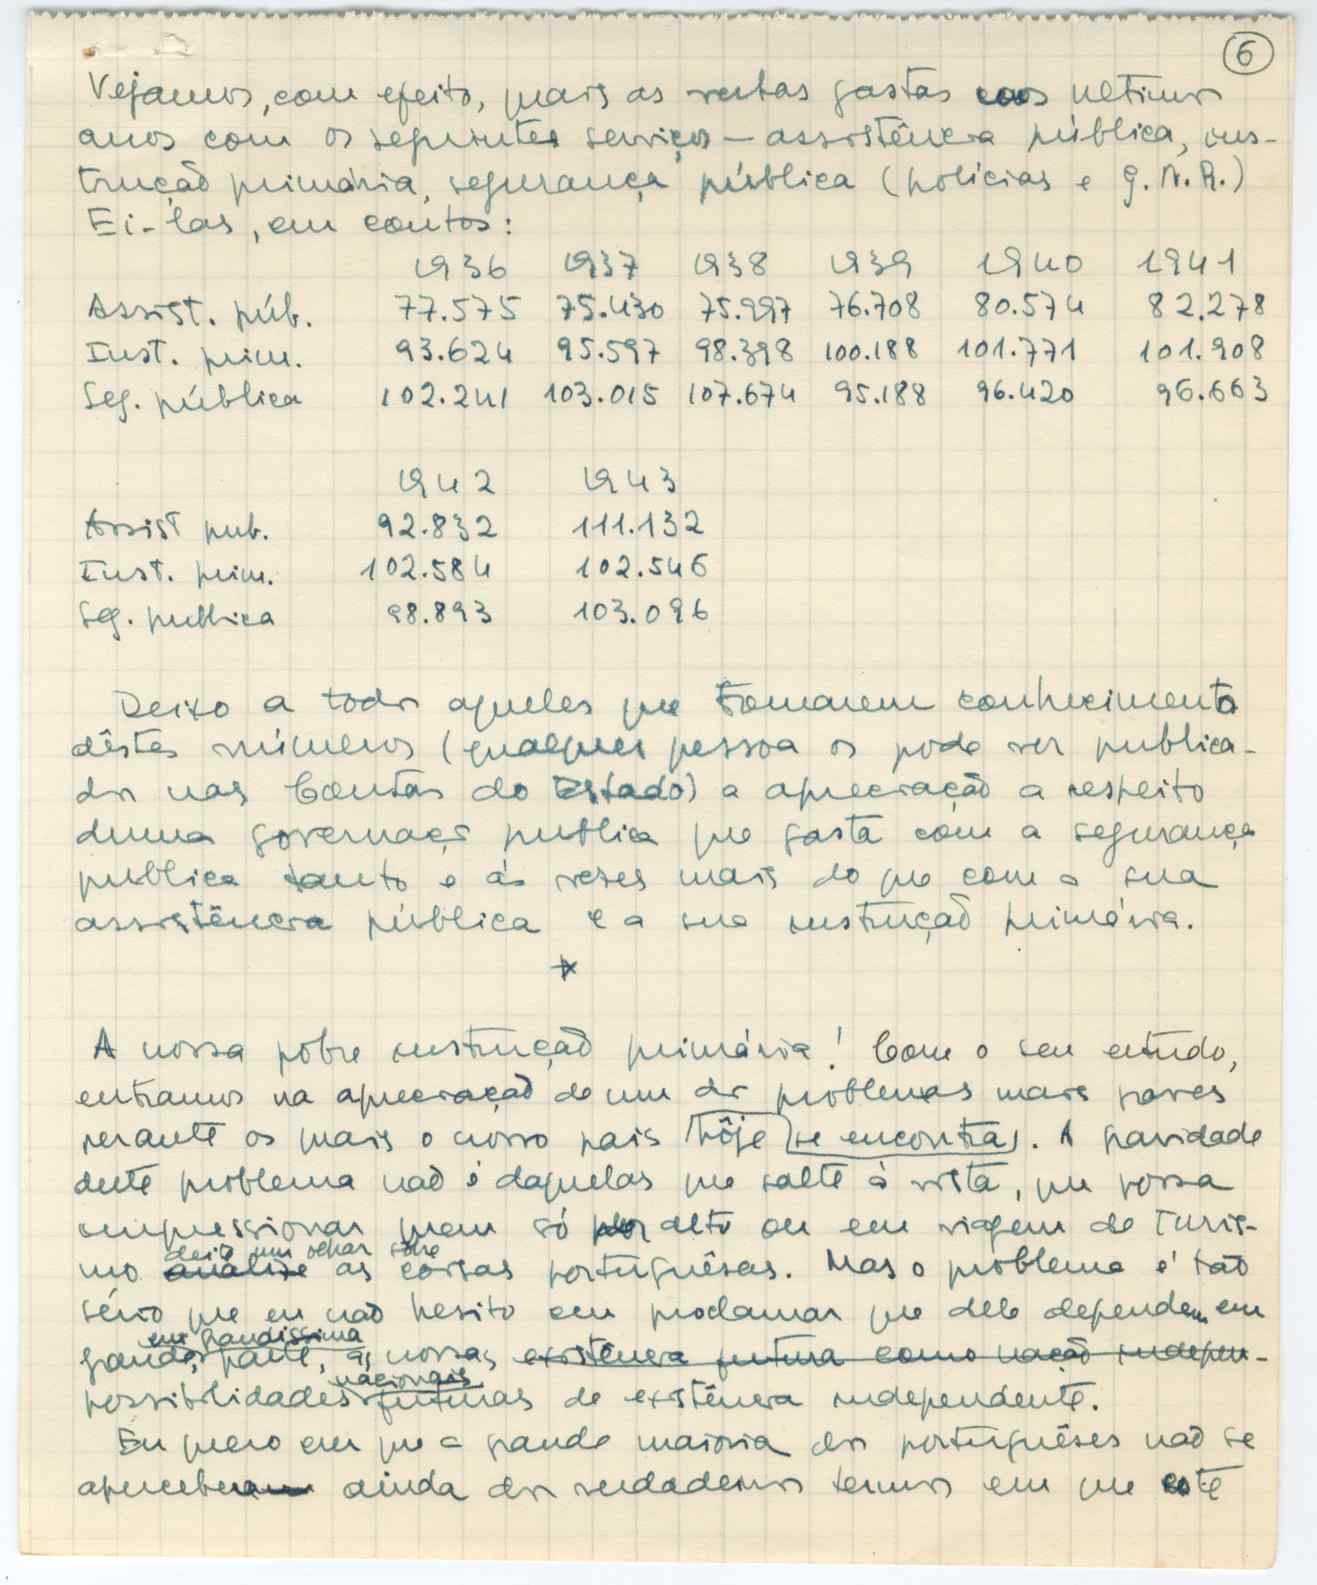 6
Vejamos, com efeito, quais as verbas gastas nos ultimos
anos com os seguintes serviços — assistência pública, ins-
trução primária, segurança pública (polícias e G.N.R.)
Ei-las, em contos:
1936 1937 1938 1939 1940 1941
Assist. púb. 77.575 75.430 75.997 76.708 80.574 82.278
Inst. prim. 93.624 95.597 98.398 100.188 101.771 101.908
Seg. pública 102.241 103.015 107.674 95.188 96.420 96.663
1942 1943
Assist pub. 92.832 111.132
Inst. prim. 102.584 102.546
Seg. publica 98.893 103.096
Deixo a todos aqueles que tomarem conhecimento
dêstes números (qualquer pessoa os pode ver publica-
dos nas Contas do Estado) a apreciação a respeito
duma governação publica que gasta com a segurança
publica tanto e ás vezes mais do que com a sua
assistência pública e a sua instrução primária.
*
A nossa pobre instrução primária! Com o seu estudo,
entramos na apreciação de um dos problemas mais graves
perante os quais o nosso pais hôje se encontra. A gravidade
deste problema não é daquelas que salte à vista, que possa
impressionar quem só por alto ou em viagem de turis-
deite um olhar sôbre
mo análise as coisas portuguêsas. Mas o problema é tão
sério que eu não hesito em proclamar que dele dependem em
em grandissima
grande parte, as nossas existência futura como nação indepen-
nacionais
possibilidades futuras de existência independente.
Eu creio em que a grande maioria dos portuguêses não se
aperceberam ainda dos verdadeiros termos em que este